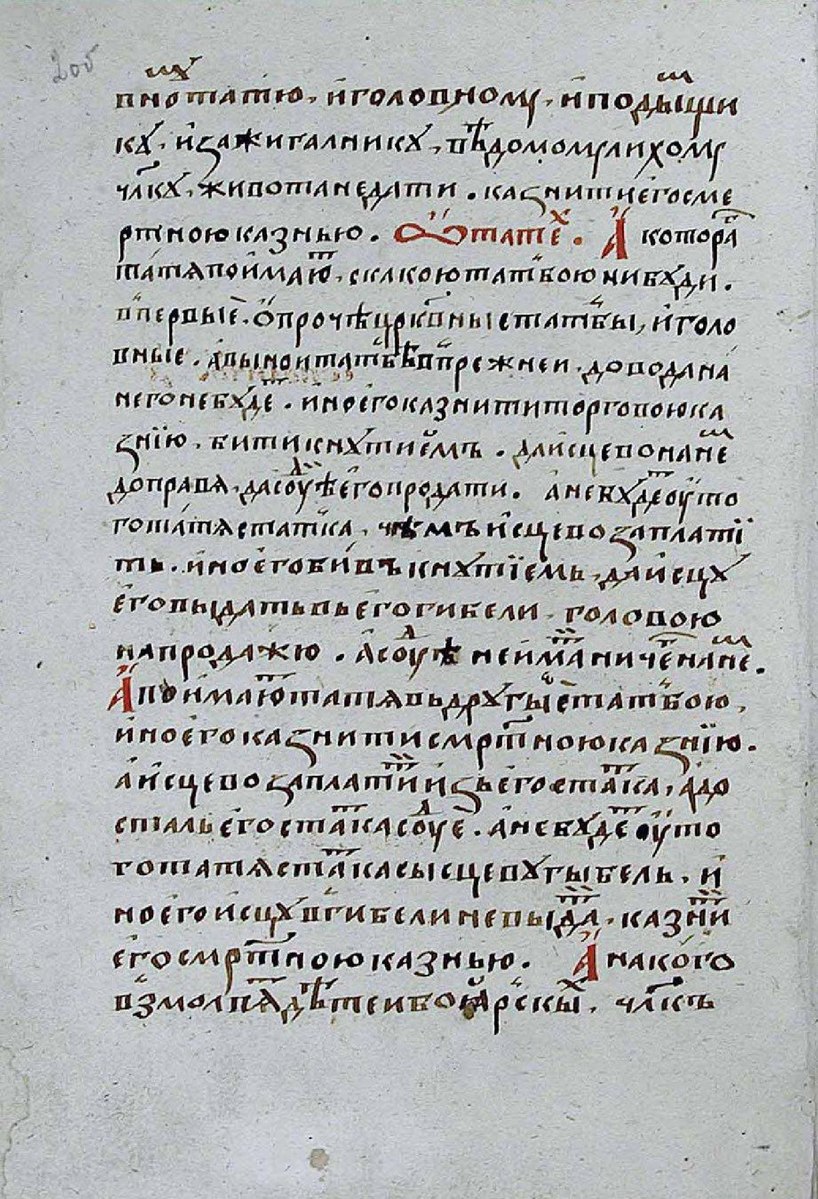 вному татю, и головному, и подымщи
ку, и зажигалнику, вѣдомому лихому
члк҃у, живота не дати. казнити его сме
ртною казнью. Ѡ татех. А котораг
татя поимаютъ, с какою татбою нибуди.
впервые. опроче црк҃овные татбы, и голо
вные. а в ыной татбѣ в прежнеи довода на
него не будет. ино его казнити торговою ка
знїю, бити кнутиемъ. да исцево на нем
доправя, да судїѣ его продати. а не будет оу то
го татя статка, чѣмъ исцево заплатї
ть. ино его бивъ кнутїемь, да исцу
его выдать вь его гибели головою
на продажю. а судьѣ не имати ничего на нем.
А поимают татя вь другые с татбою,
ино его казнити смртною казнїю.
а исцево заплатити изь его статка, а до
сталь его статка судье. а не будет оу то
го татя статка сь ысцеву гыбель, и
но его исцу в гибели не выдати, казнити
его смртною казнью. А на кого
взмолвят дѣтеи боярских, члк҃ъ
200